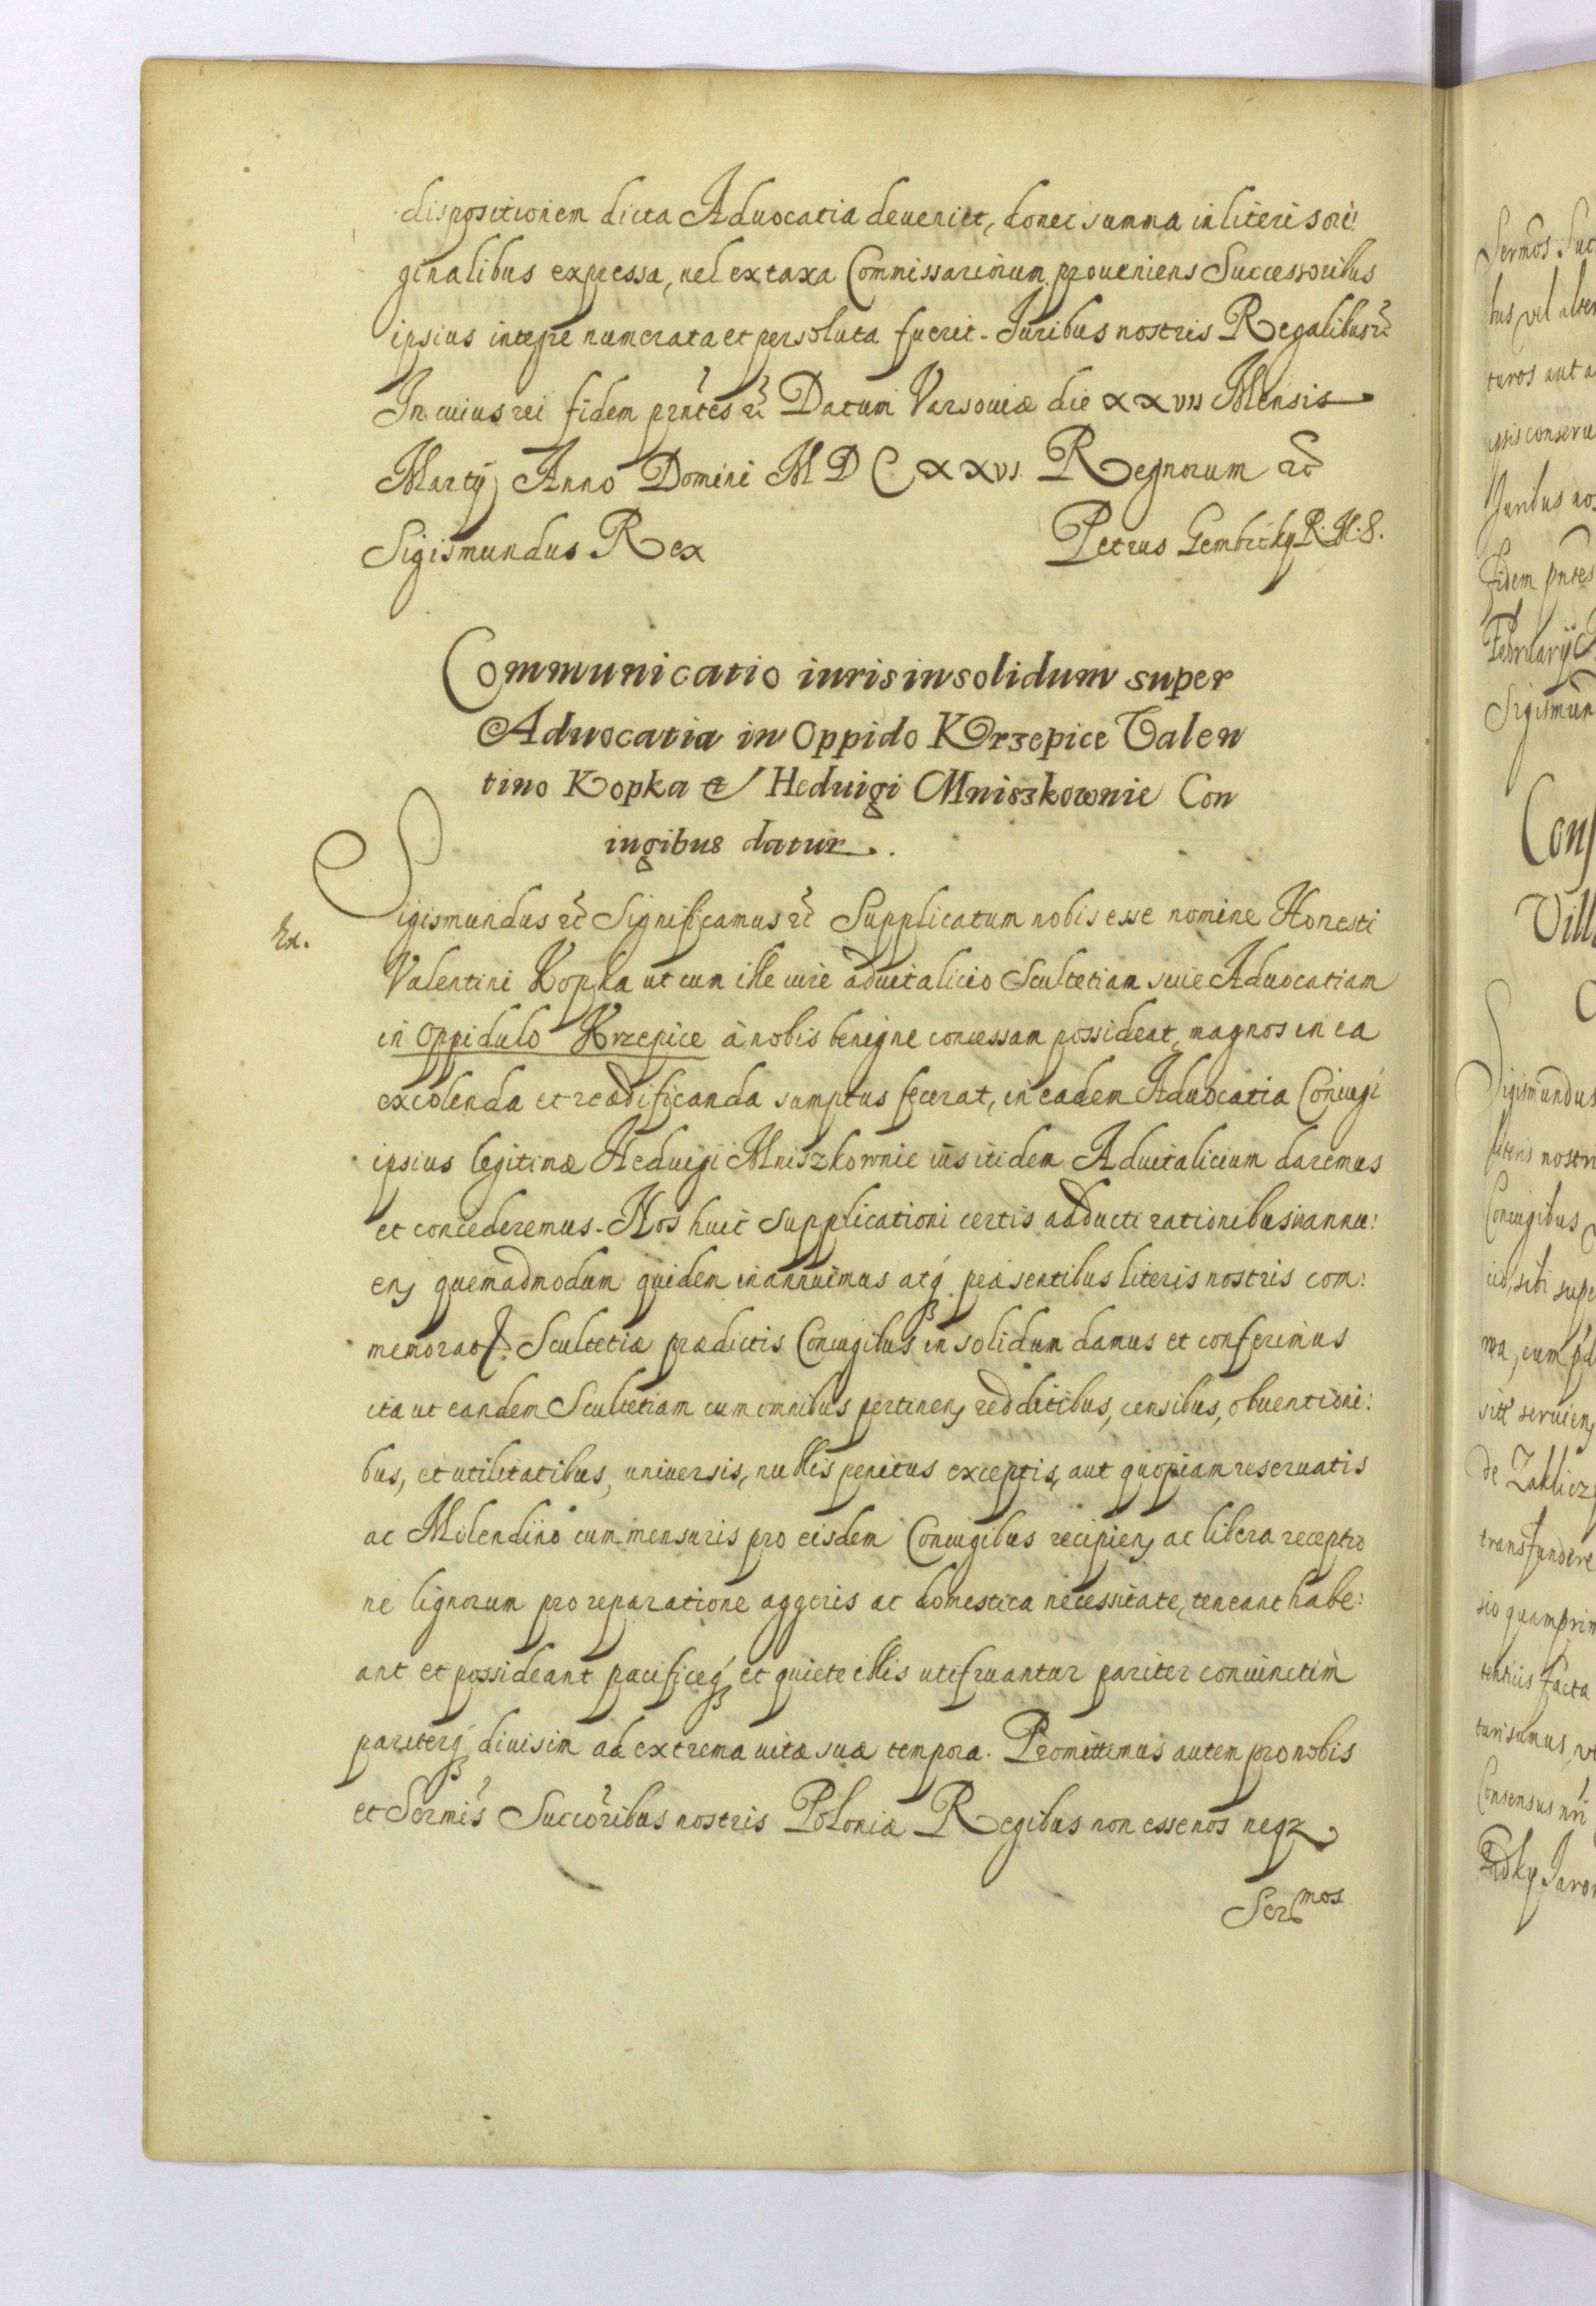 dispositionem dicta Aduocatia deueniet, donec summa in literis ori:
ginalibus expressa, uel ex taxa Commissariorum proueniens Successoribus
ipsius integre numerata et persoluta fuerit. Iuribus nostris Regalibus etc
In cuius rei fidem pntes etc Datum Varsouiæ die XXVII Mensis
Martij Anno Domini MDCXXVI. Regnorum etc
Sigismundus Rex Petrus Gembicky R. M. S.
Communicatio iuris insolidum super
Aduocatia in Oppido Krzepice Valen
tino Kopka et Heduigi Mniszkownie Con
iugibus datur.
Ex.
Sigismundus etc Significamus etc Supplicatum nobis esse nomine Honesti
Valentini Kopka ut cum ille iure aduitalicio Scultetiam siue Aduocatiam
in Oppidulo Krzepice à nobis benigne concessam possideat, magnos in ea
excolenda et reædificanda sumptus fecerat, in eadem Aduocatia Coniugi
ipsius legitimæ Heduigi Mniszkownie ius itidem Aduitalicium daremus
et concederemus. Nos huic supplicationi certis adducti rationibus inannu:
en, quemadmodum quidem inannuimus atq præsentibus literis nostris com:
memorat Scultetiæ prædictis Coniugibus in solidum damus et conferimus
ita ut eandem Scultetiam cum omnibus pertinen, redditibus, censibus, obuentioni:
bus, et utilitatibus, uniuersis, nullis penitus exceptis, aut quopiam reseruatis
ac Molendino cum mensuris pro eisdem Coniugibus recipien, ac libera receptio
ne lignorum pro reparatione aggeris ac domestica necessitate, teneant habe:
ant et possideant pacificeq et quiete illis utifruantur pariter coniunctim
pariterq diuisim ad extrema uitæ suæ tempora. Promittimus autem pro nobis
et Sermis Succoribus nostris Poloniæ Regibus non esse nos neqz
Sermos